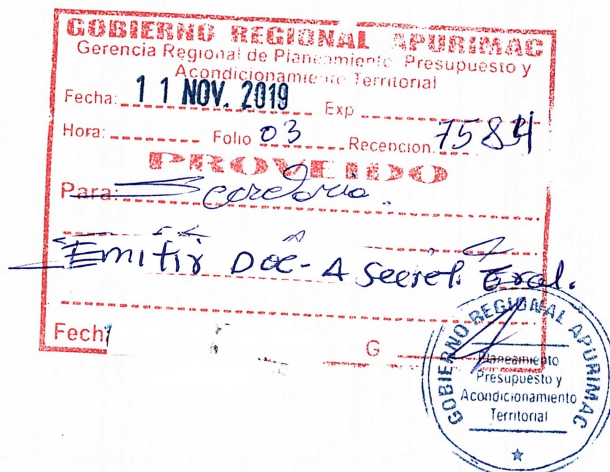 GOBIERNO REGIONAL APURIMAC
Gerencia Regional de Planeamiento Presupuesto y
Acondicionamiento Territorial
Fecha: 11 NOV. 2019 Exp
Hora: Folio 03 Recencion: 7584
PROVEIDO
Para: Secretaria.
Emitir Doc- A Secret. Gral.
Fech
G
GOBIERNO REGIONAL APURIMAC
Planeamiento
Presupuesto y
Acondicionamiento
Territorial